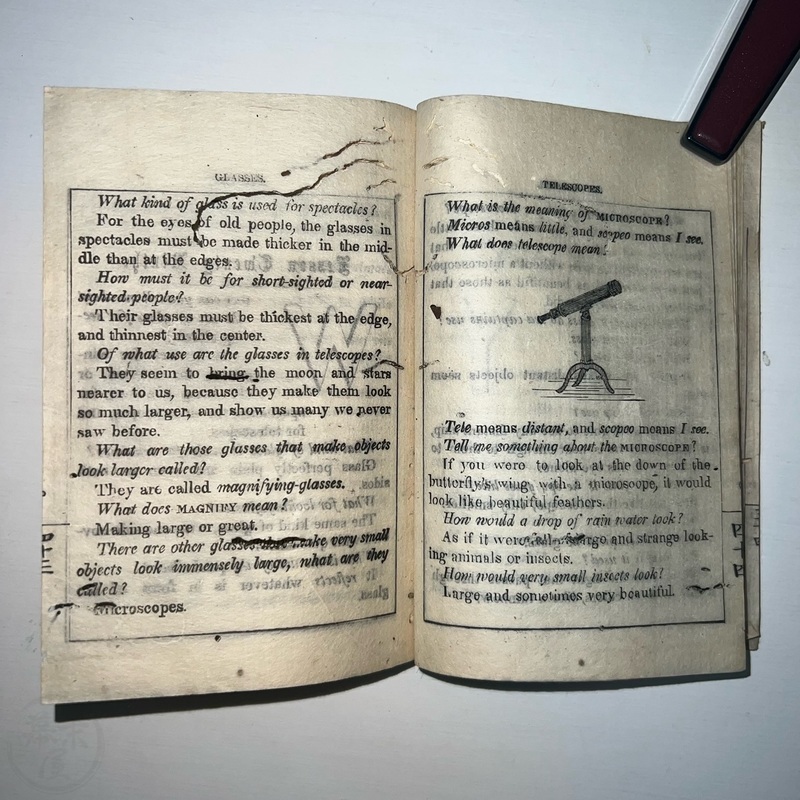 GLASSES.
What kind of glass is used for spectacles?
For the eyes of old people, the glasses in
spectacles must be made thicker in the mid-
dle than at the edges.
How must it be for short-sighted or near-
sighted people?
Their glasses must be thickest at the edge,
and thinnest in the center.
Of what use are the glasses in telescopes?
They seem to bring the moon and stars
nearer to us, because they make them look
so much larger, and show us many we never
saw before.
What are those glasses that make objects
look larger called?
They are called magnifying-glasses.
What does MAGNIFY mean?
Making large or great.
There are other glasses that make very small
objects look immensely large, what are they
called?
Microscopes.
四十三
TELESCOPES.
What is the meaning of MICROSCOPE?
Micros means little, and scopeo means I see.
What does telescope mean?
Tele means distant, and scopeo means I see.
Tell me something about the MICROSCOPE?
If you were to look at the down of the
butterfly's wing with a microscope, it would
look like beautiful feathers.
How would a drop of rain water look?
As if it were full large and strange look-
ing animals or insects.
How would very small insects look?
Large and sometimes very beautiful.
四十四